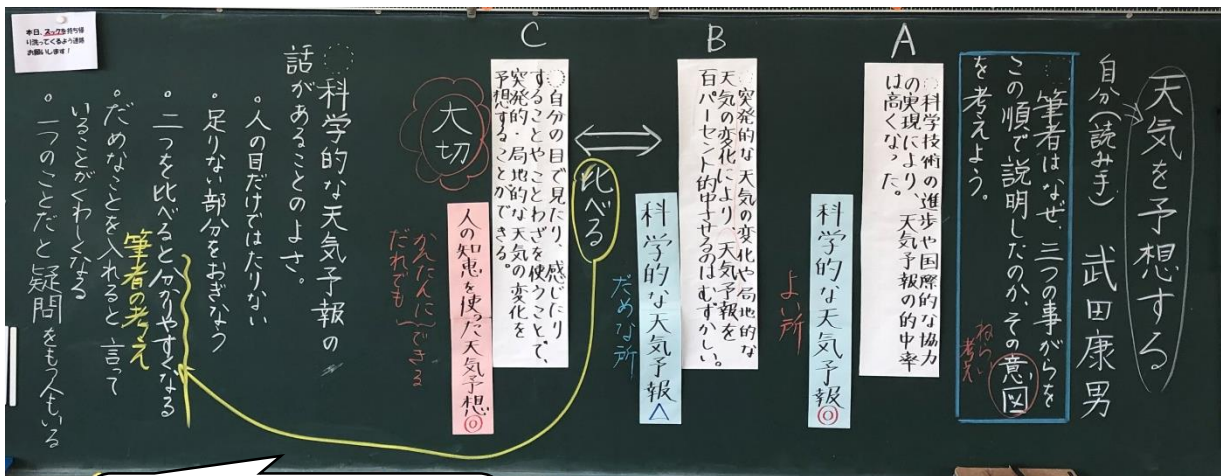 天気を予想する
自分(読み手) 武田康男
筆者はなぜ、三つの事がらを
この順で説明したのか、その意図
を考えよう。
ねらい
考え
A
科学技術の進歩や国際的な協力
の実現により、天気予報の的中率
は高くなった。
科学的な天気予報◎
よい所
B
突発的な天気の変化や局地的な
天気の変化により、天気予報を
百パーセント的中させるのはむずかしい。
科学的な天気予報△
だめな所
比べる
C
自分の目で見たり、感じたり
することやことわざを使うことで、
突発的、局地的な天気の変化を
予想することができる。
大切
人の知恵を使った天気予想◎
かんたんに〜できる
だれでも〜
科学的な天気予報の
話があることのよさ。
・人の目だけではたりない
・足りない部分をおぎなう
・二つを比べると分かりやすくなる
筆者の考え
・だめなことを入れると、言って
いることがくわしくなる
・一つのことだと疑問をもつ人もいる
本日、ズックを持ち帰
り洗ってくるよう連絡
お願いします!